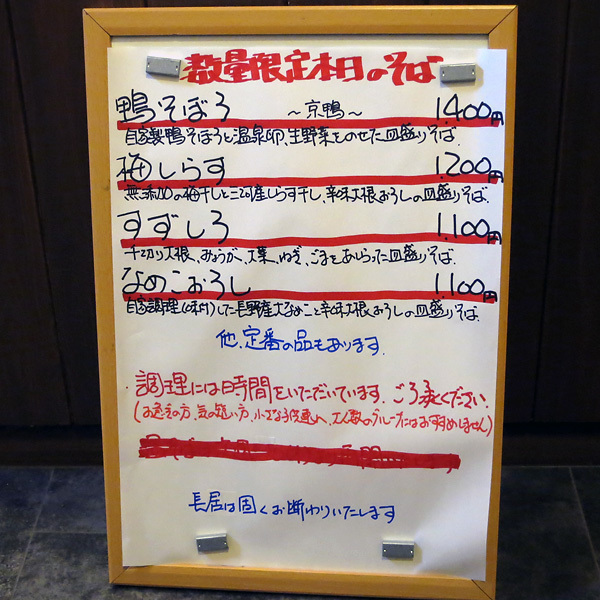 数量限定本日のそば
鴨そぼろ ～京鴨～ 1,400円
自家製鴨そぼろと温泉卵、生野菜をのせた皿盛りそば.
梅しらす 1,200円
無添加の梅干しと三河産しらす干し、辛味大根おろしの皿盛りそば.
すずしろ 1,100円
千切り大根、みょうが、大葉、ねぎ、ごまをあしらった皿盛りそば.
なめこおろし 1,100円
自家調理(味付)した長野産大なめこと辛味大根おろしの皿盛りそば.
他、定番の品もあります.
調理には時間をいただいています. ご了承ください.
(お急ぎの方、気の短い方、小さな子供連れ、大人数のグループにはおすすめしません)
長居は固くお断わりいたします